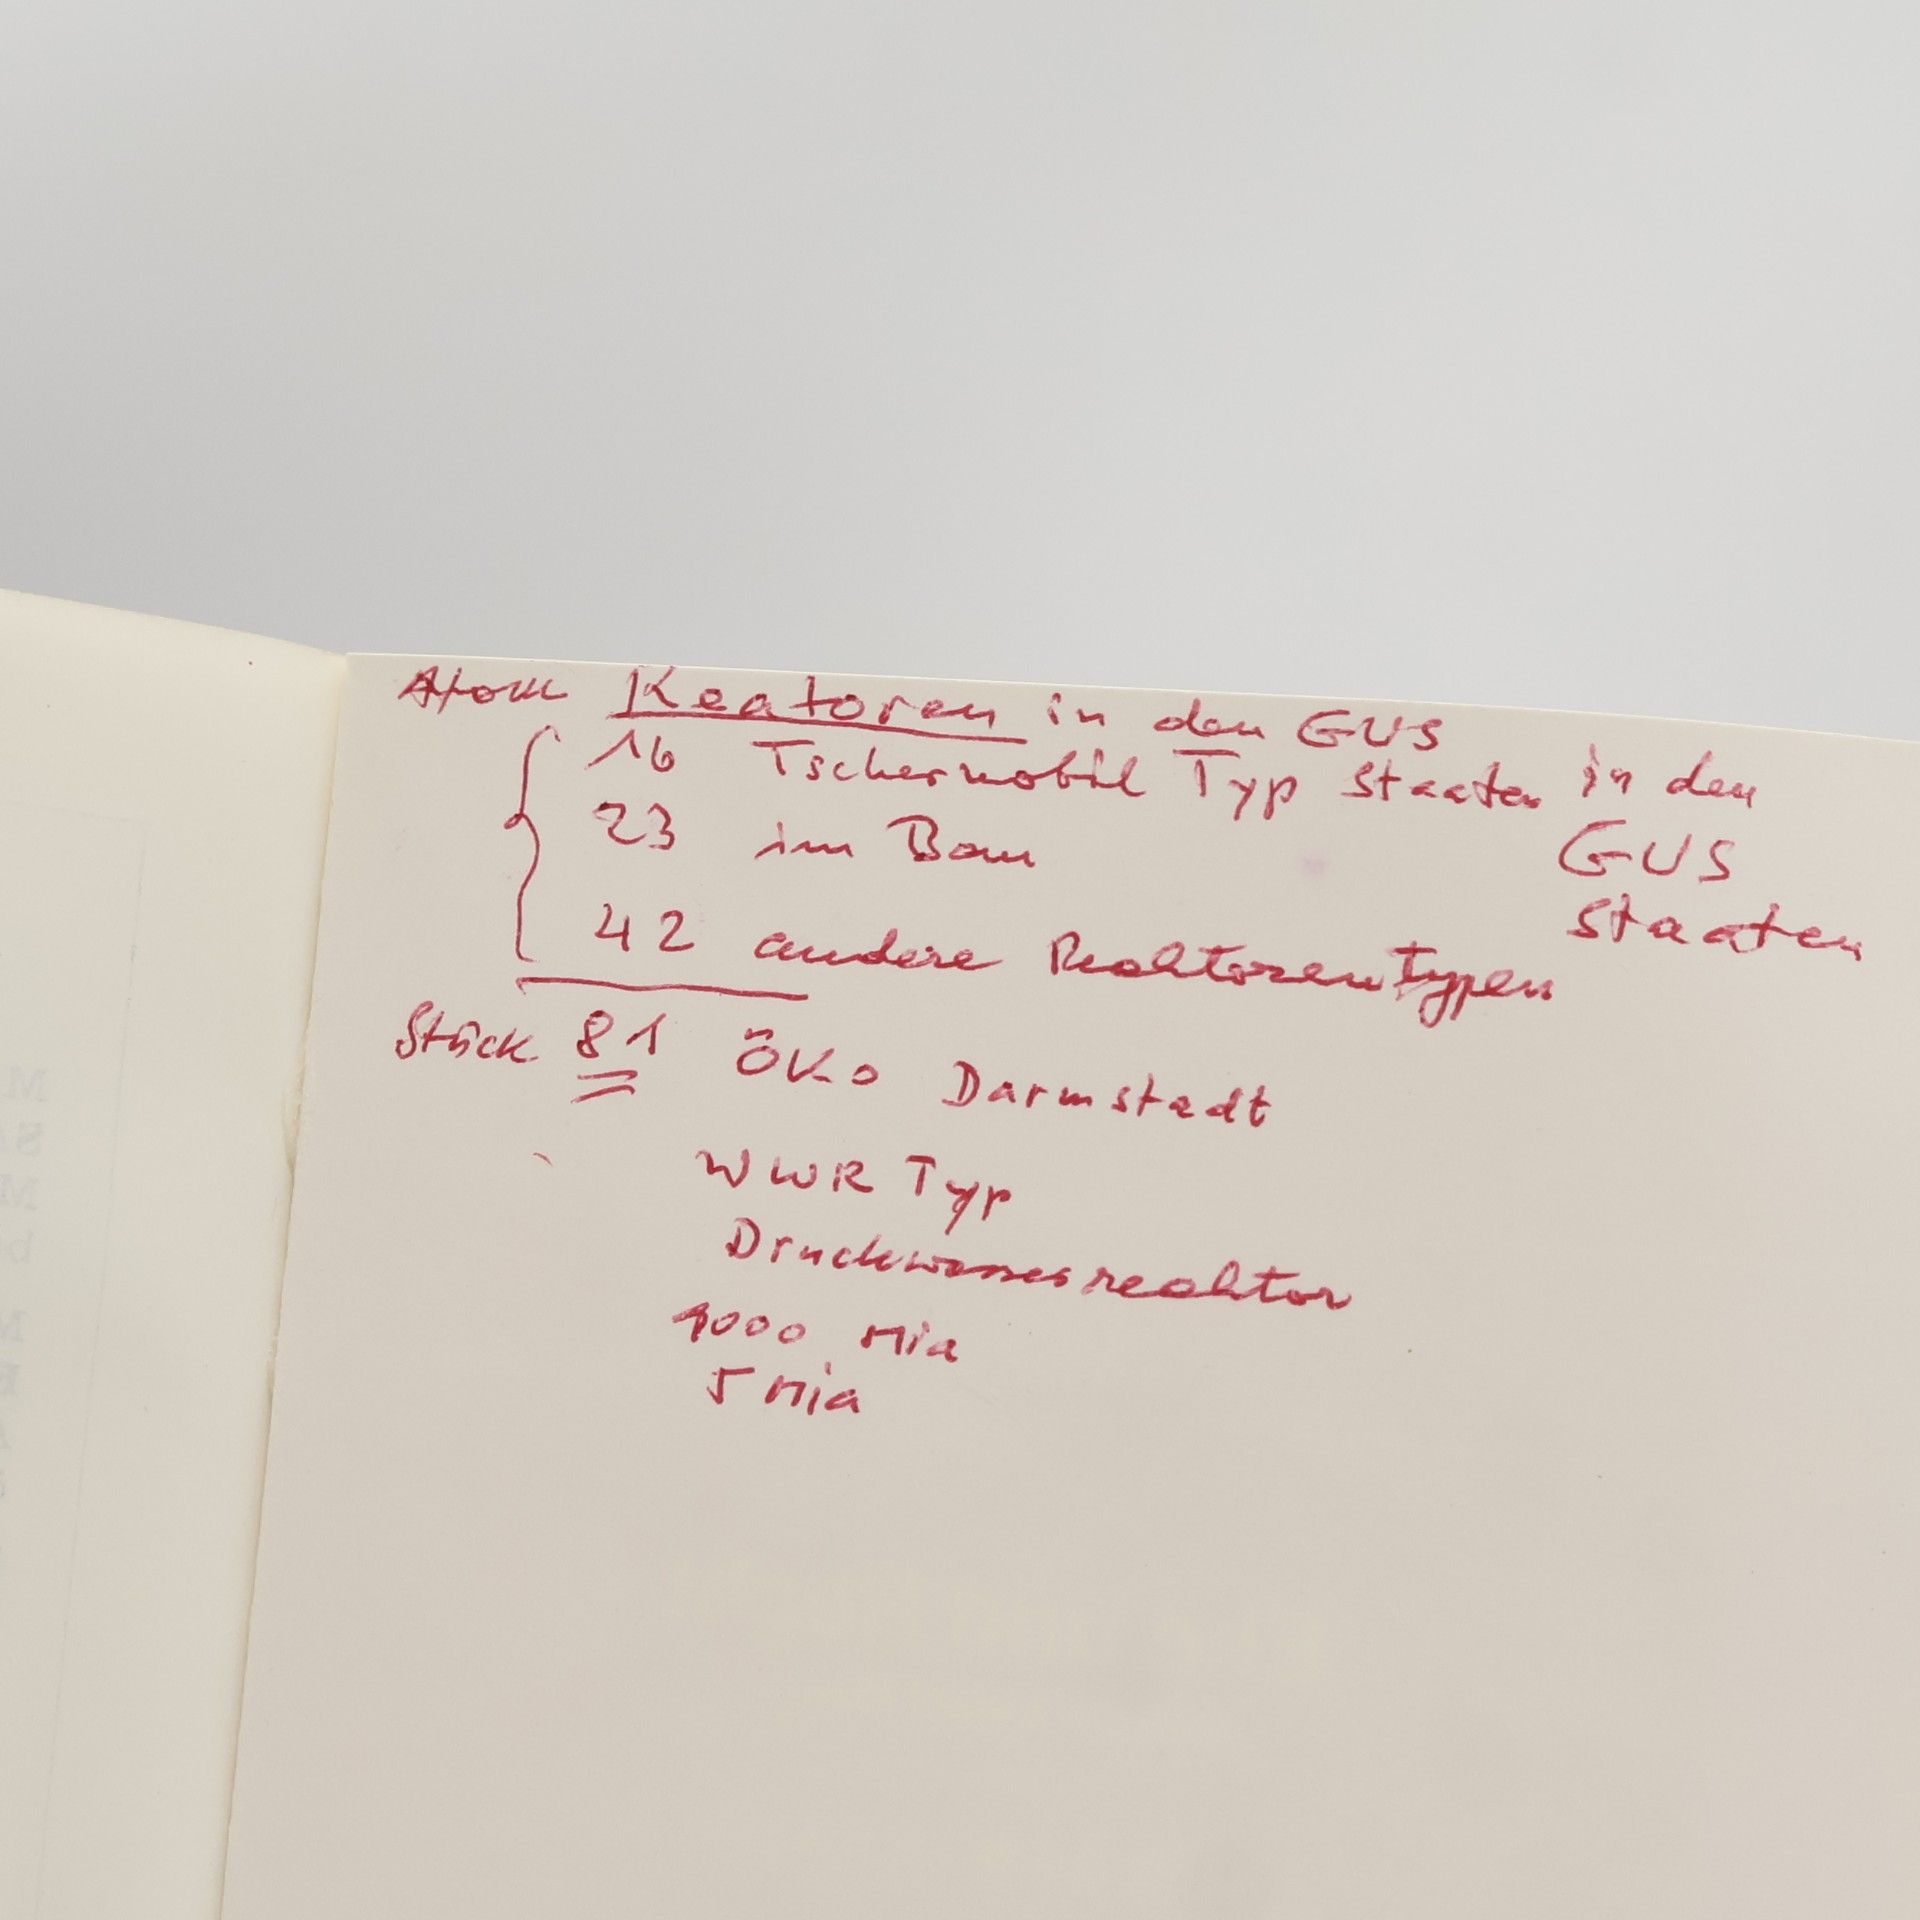 Atom Reatoren in den GUS
16 Tschernobil Typ Staaten in den
23 im Bau GUS
42 andere Reaktorentypen Staaten
Stück 81 ÖKO Darmstadt
WWR Typ
Druckwasserreaktor
1000 Mia
5 Mia